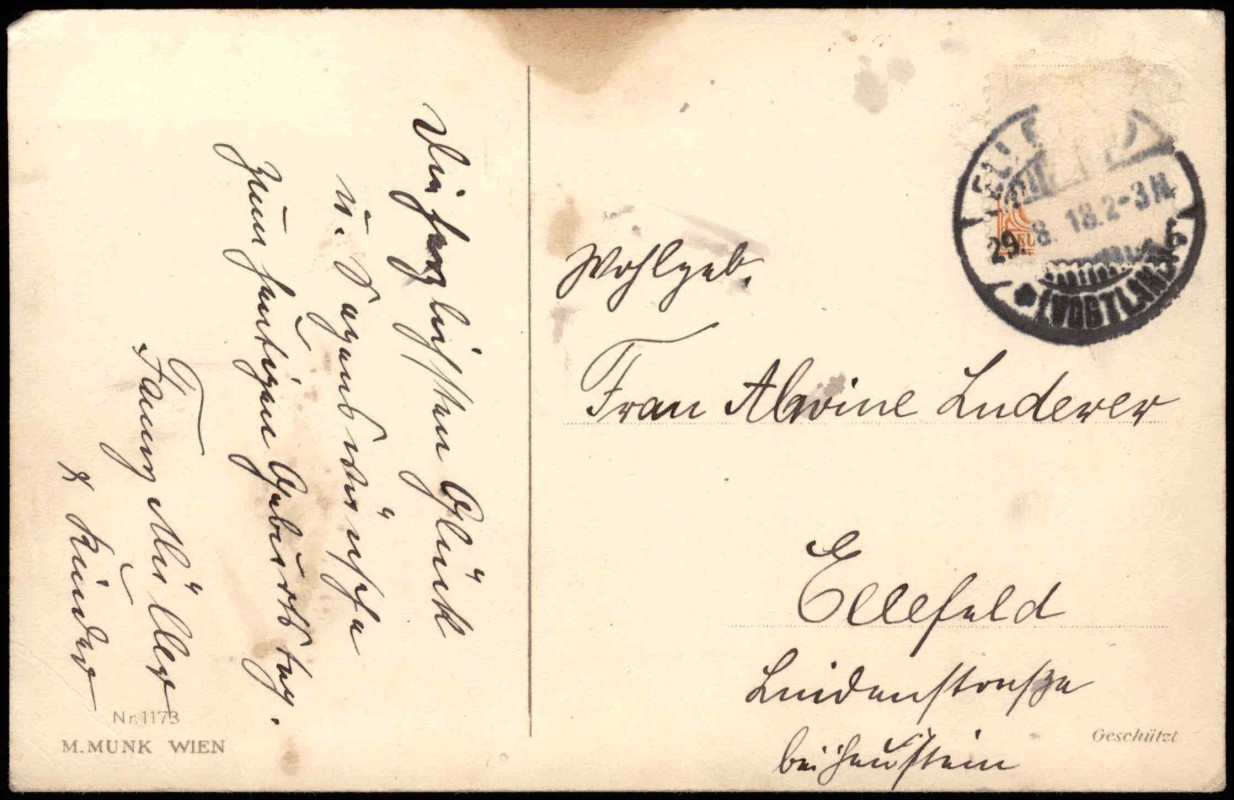 Die herzlichsten Glück
u. Segenswünsche
zum heutigen Geburtstag.
Fanny Müller
& Kinder
Nr. 1173
M. MUNK WIEN
ELLEFELD
29.8.18.2-3N.
* (VOGTLAND)
Wohlgeb.
Frau Alwine Luderer
Ellefeld
Lindenstraße
bei
Geschützt